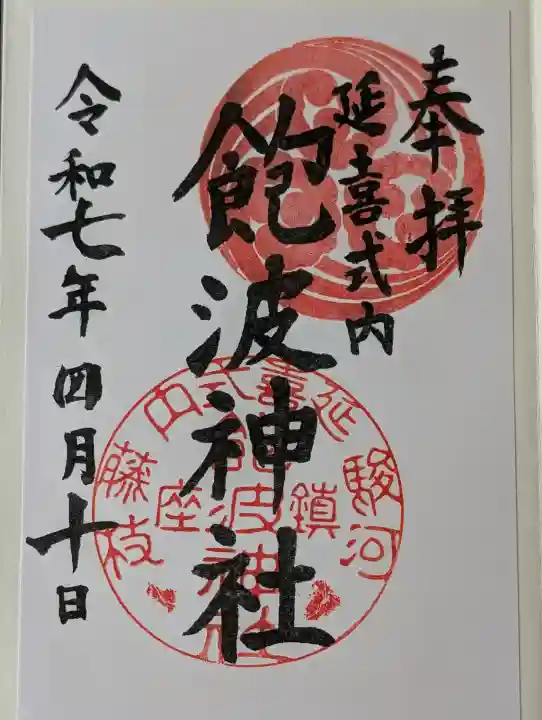 奉拝
延喜式内
飽波神社
令和七年四月十日
駿河
延喜式内
藤枝
鎮座
飽波神社